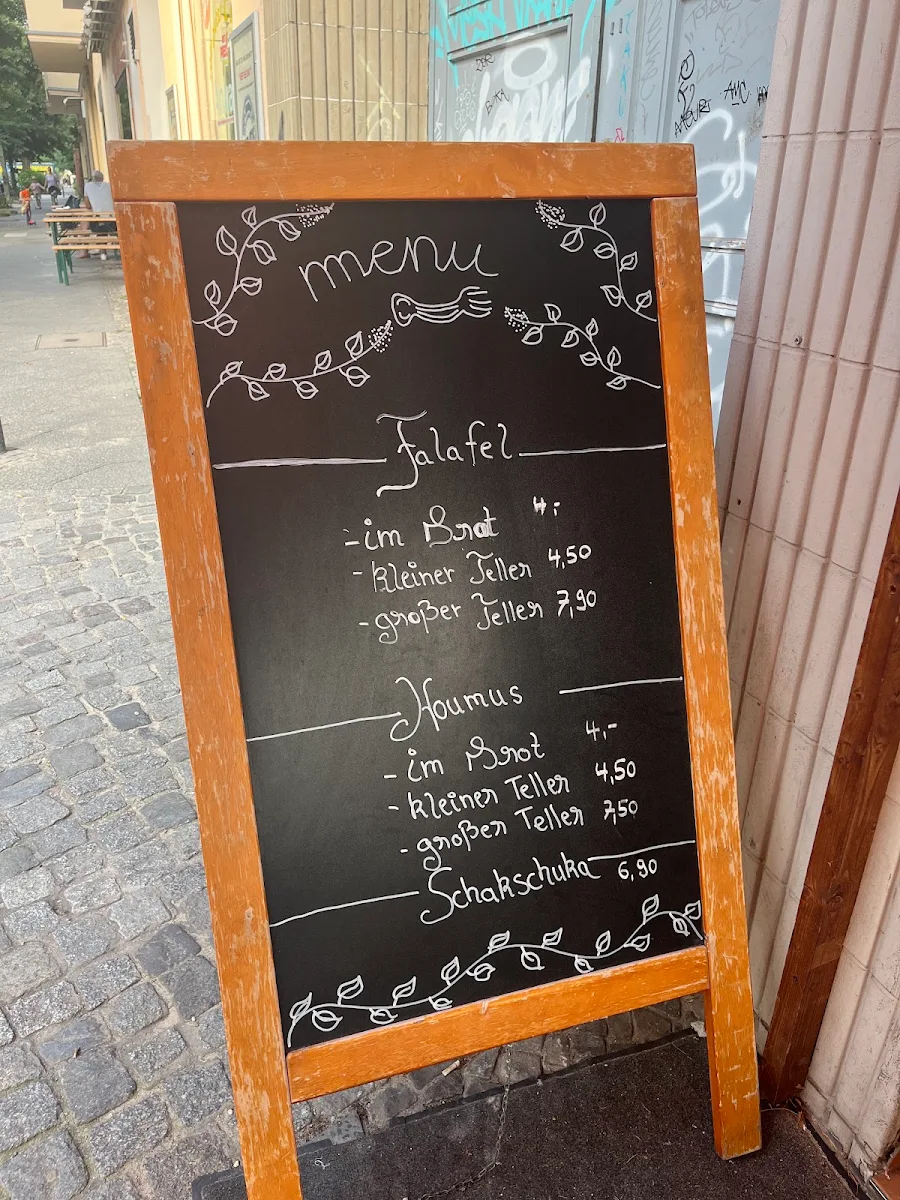 menu
Falafel
- im Brot 4,-
- kleiner Teller 4,50
- großer Teller 7,90
Houmus
- im Brot 4,-
- kleiner Teller 4,50
- großer Teller 7,50
Schakschuka 6,90